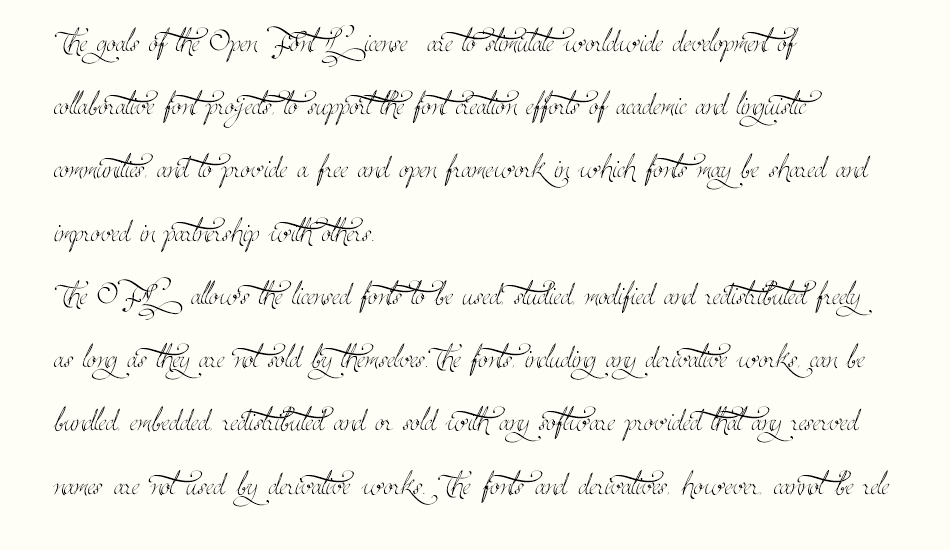 The goals of the Open Font License are to stimulate worldwide development of
collaborative font projects, to support the font creation efforts of academic and linguistic
communities, and to provide a free and open framework in which fonts may be shared and
improved in partnership with others.
The OFL allows the licensed fonts to be used, studied, modified and redistributed freely
as long as they are not sold by themselves. The fonts, including any derivative works, can be
bundled, embedded, redistributed and or sold with any software provided that any reserved
names are not used by derivative works. The fonts and derivatives, however, cannot be rele